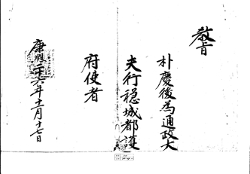 教旨
朴慶後為通政大
夫行穩城都護
府使者
康熙二十六年十二月十七日